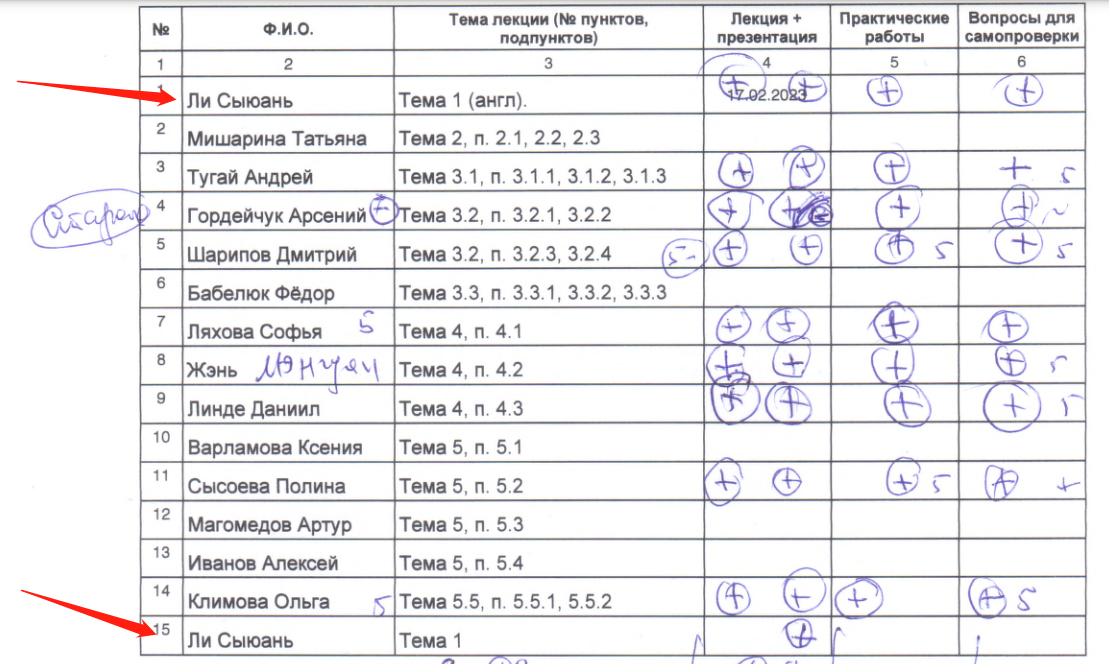 № Ф.И.О. Тема лекции (№ пунктов, подпунктов) Лекция + презентация Практические работы Вопросы для самопроверки
1 2 3 4 5 6
1 Ли Сыюань Тема 1 (англ). 17.02.2023 + + + +
2 Мишарина Татьяна Тема 2, п. 2.1, 2.2, 2.3
3 Тугай Андрей Тема 3.1, п. 3.1.1, 3.1.2, 3.1.3 + + + + 5
4 Гордейчук Арсений Тема 3.2, п. 3.2.1, 3.2.2 + + + +
5 Шарипов Дмитрий Тема 3.2, п. 3.2.3, 3.2.4 5- + + + 5 + 5
6 Бабелюк Фёдор Тема 3.3, п. 3.3.1, 3.3.2, 3.3.3
7 Ляхова Софья 5 Тема 4, п. 4.1 + + + +
8 Жэнь Тема 4, п. 4.2 + + + + 5
9 Линде Даниил Тема 4, п. 4.3 + + + + 5
10 Варламова Ксения Тема 5, п. 5.1
11 Сысоева Полина Тема 5, п. 5.2 + + + 5 + +
12 Магомедов Артур Тема 5, п. 5.3
13 Иванов Алексей Тема 5, п. 5.4
14 Климова Ольга 5 Тема 5.5, п. 5.5.1, 5.5.2 + + + + 5
15 Ли Сыюань Тема 1 +